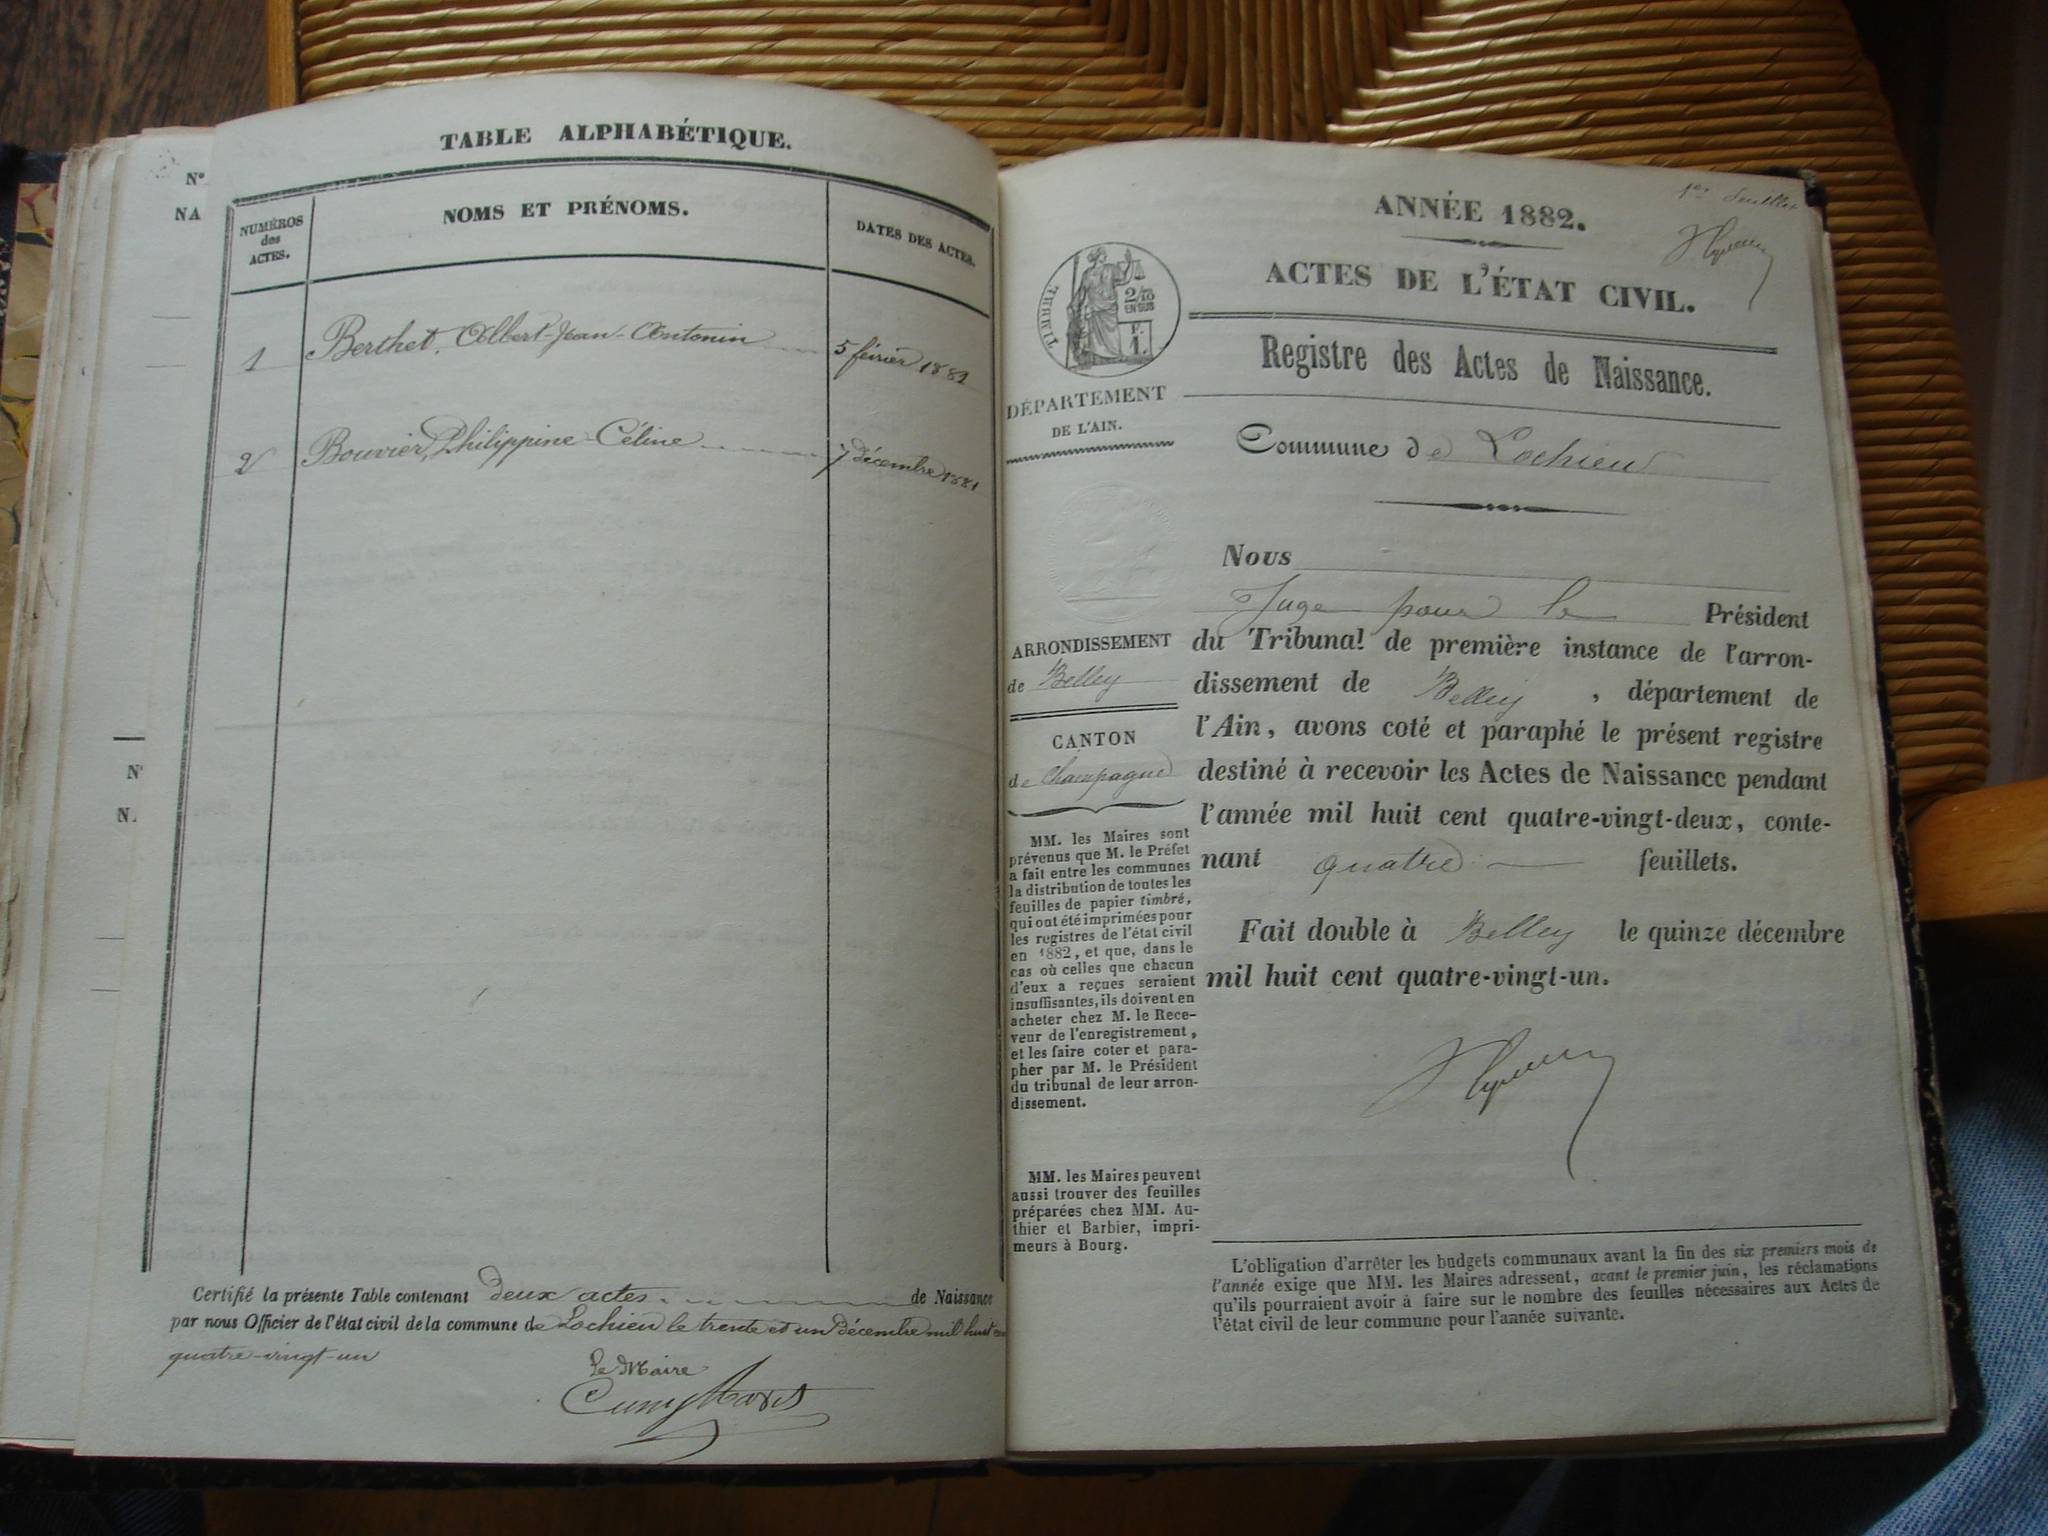 N°
NA
N°
N.
TABLE ALPHABÉTIQUE.
NUMÉROS
des
ACTES.
NOMS ET PRÉNOMS.
DATES DES ACTES.
1 Berthet, Albert-Jean-Antonin 5 février 1881
2 Bouvier, Philippine-Céline 7 décembre 1881
Certifié la présente Table contenant deux actes de Naissance
par nous Officier de l'état civil de la commune de Lochieu le trente et un décembre mil huit cen
quatre-vingt-un
Le Maire
1er feuillet
ANNÉE 1882.
ACTES DE L'ÉTAT CIVIL.
TIMBRE
2/10
EN SUS
F.
1.
Registre des Actes de Naissance.
DÉPARTEMENT
DE L'AIN.
Commune de Lochieu
ARRONDISSEMENT
de Belley
CANTON
de Champagne
MM. les Maires sont
prévenus que M. le Préfet
a fait entre les communes
la distribution de toutes les
feuilles de papier timbré,
qui ont été imprimées pour
les registres de l'état civil
en 1882, et que, dans le
cas où celles que chacun
d'eux a reçues seraient
insuffisantes, ils doivent en
acheter chez M. le Rece-
veur de l'enregistrement,
et les faire coter et para-
pher par M. le Président
du tribunal de leur arron-
dissement.
MM. les Maires peuvent
aussi trouver des feuilles
préparées chez MM. Au-
thier et Barbier, impri-
meurs à Bourg.
Nous
Juge pour le Président
du Tribunal de première instance de l'arron-
dissement de Belley, département de
l'Ain, avons coté et paraphé le présent registre
destiné à recevoir les Actes de Naissance pendant
l'année mil huit cent quatre-vingt-deux, conte-
nant quatre feuillets.
Fait double à Belley le quinze décembre
mil huit cent quatre-vingt-un.
L'obligation d'arrêter les budgets communaux avant la fin des six premiers mois de
l'année exige que MM. les Maires adressent, avant le premier juin, les réclamations
qu'ils pourraient avoir à faire sur le nombre des feuilles nécessaires aux Actes de
l'état civil de leur commune pour l'année suivante.